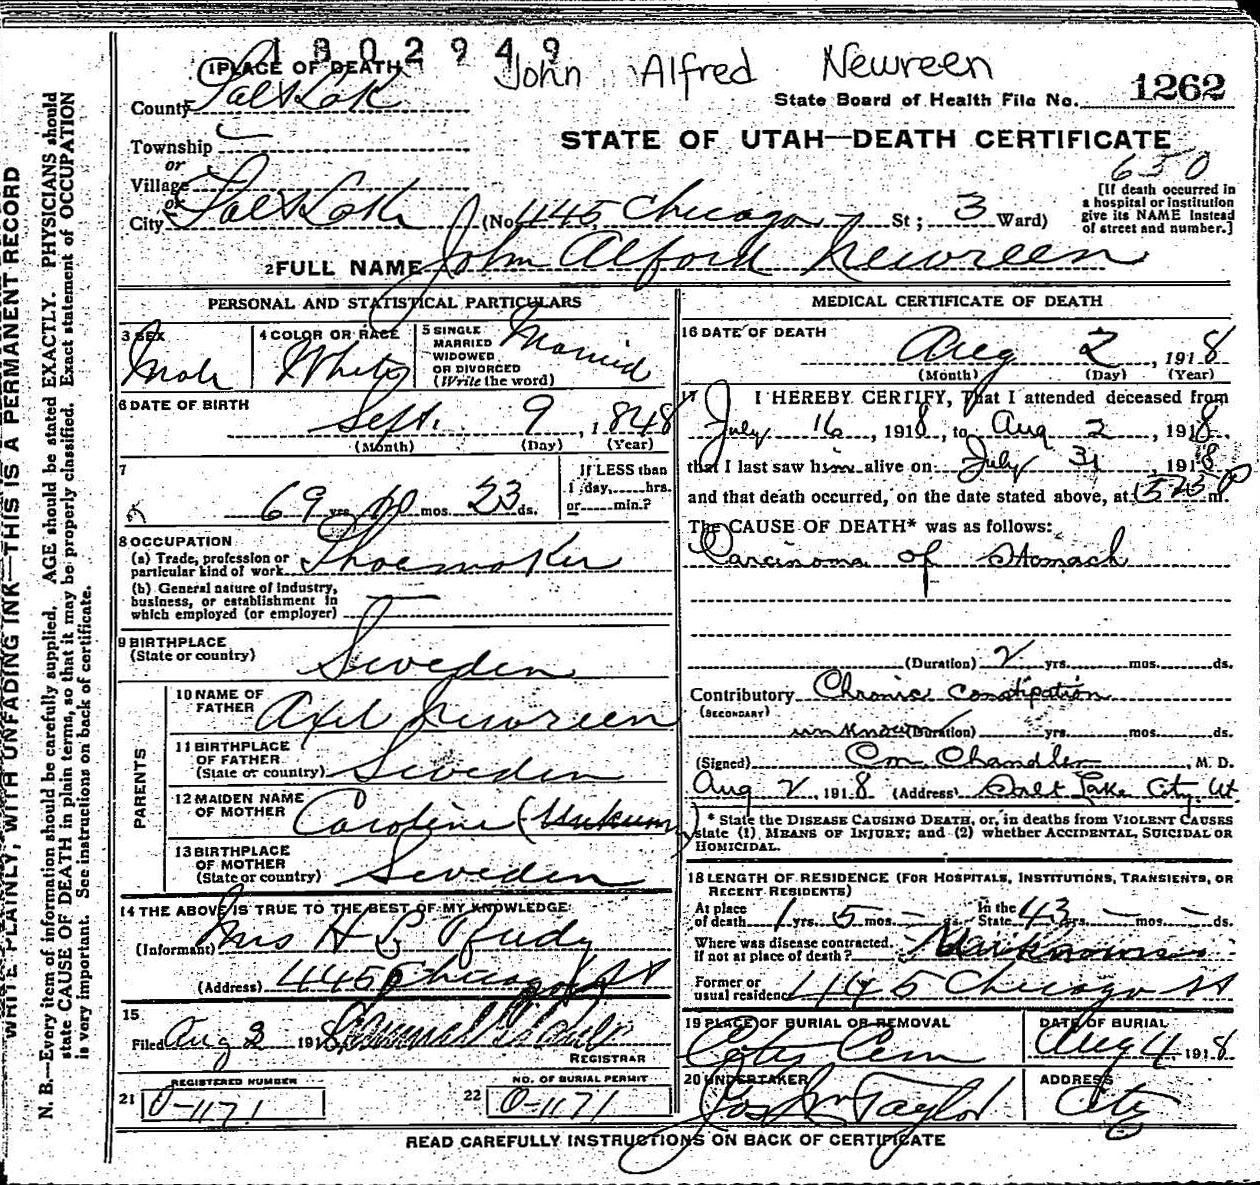 1302949
John Alfred Newreen
1 PLACE OF DEATH
County Salt Lake
State Board of Health File No. 1262
STATE OF UTAH—DEATH CERTIFICATE
Township
or
Village
or
650
[If death occurred in a hospital or institution give its NAME instead of street and number.]
City Salt Lake (No 445 Chicago St; 3 Ward)
2 FULL NAME John Alford Newreen
PERSONAL AND STATISTICAL PARTICULARS
3 SEX
Male
4 COLOR OR RACE
White
5 SINGLE MARRIED WIDOWED OR DIVORCED (Write the word)
Married
6 DATE OF BIRTH
Sept. 9, 1848
(Month) (Day) (Year)
7
69 yrs 10 mos 23 ds.
If LESS than 1 day,......hrs. or......min.?
8 OCCUPATION
(a) Trade, profession or particular kind of work Shoemaker
(b) General nature of industry, business, or establishment in which employed (or employer)
9 BIRTHPLACE
(State or country) Sweden
PARENTS
10 NAME OF FATHER Axel Newreen
11 BIRTHPLACE OF FATHER (State or country) Sweden
12 MAIDEN NAME OF MOTHER Caroline
13 BIRTHPLACE OF MOTHER (State or country) Sweden
14 THE ABOVE IS TRUE TO THE BEST OF MY KNOWLEDGE
(Informant) Mrs H Rudy
(Address) 445 Chicago St
15
Filed Aug 1918
REGISTRAR
REGISTERED NUMBER
21 O-1171
NO. OF BURIAL PERMIT
22 O-1171
MEDICAL CERTIFICATE OF DEATH
16 DATE OF DEATH
Aug 2, 1918
(Month) (Day) (Year)
17 I HEREBY CERTIFY, That I attended deceased from
July 16, 1918, to Aug 2, 1918,
that I last saw him alive on July 31, 1918
and that death occurred, on the date stated above, at 525 P m.
The CAUSE OF DEATH* was as follows:
Carcinoma of Stomach
(Duration) 2 yrs. mos. ds.
Contributory Chronic Constipation
(SECONDARY)
unknown (Duration) yrs. mos. ds.
(Signed) Chandler, M. D.
Aug 2, 1918 (Address) Salt Lake City, Ut.
* State the DISEASE CAUSING DEATH, or, in deaths from VIOLENT CAUSES
state (1) MEANS OF INJURY; and (2) whether ACCIDENTAL, SUICIDAL OR
HOMICIDAL.
18 LENGTH OF RESIDENCE (FOR HOSPITALS, INSTITUTIONS, TRANSIENTS, OR
RECENT RESIDENTS)
At place of death 1 yrs. 5 mos. — ds. In the State 43 yrs. — mos. — ds.
Where was disease contracted, If not at place of death? Unknown
Former or usual residence 445 Chicago St
19 PLACE OF BURIAL OR REMOVAL
City Cem
DATE OF BURIAL
Aug 4 1918
20 UNDERTAKER
Jos Wm Taylor
ADDRESS
City
READ CAREFULLY INSTRUCTIONS ON BACK OF CERTIFICATE
WRITE PLAINLY, WITH UNFADING INK—THIS IS A PERMANENT RECORD
N. B.—Every item of information should be carefully supplied. AGE should be stated EXACTLY. PHYSICIANS should
state CAUSE OF DEATH in plain terms, so that it may be properly classified. Exact statement of OCCUPATION
is very important. See instructions on back of certificate.